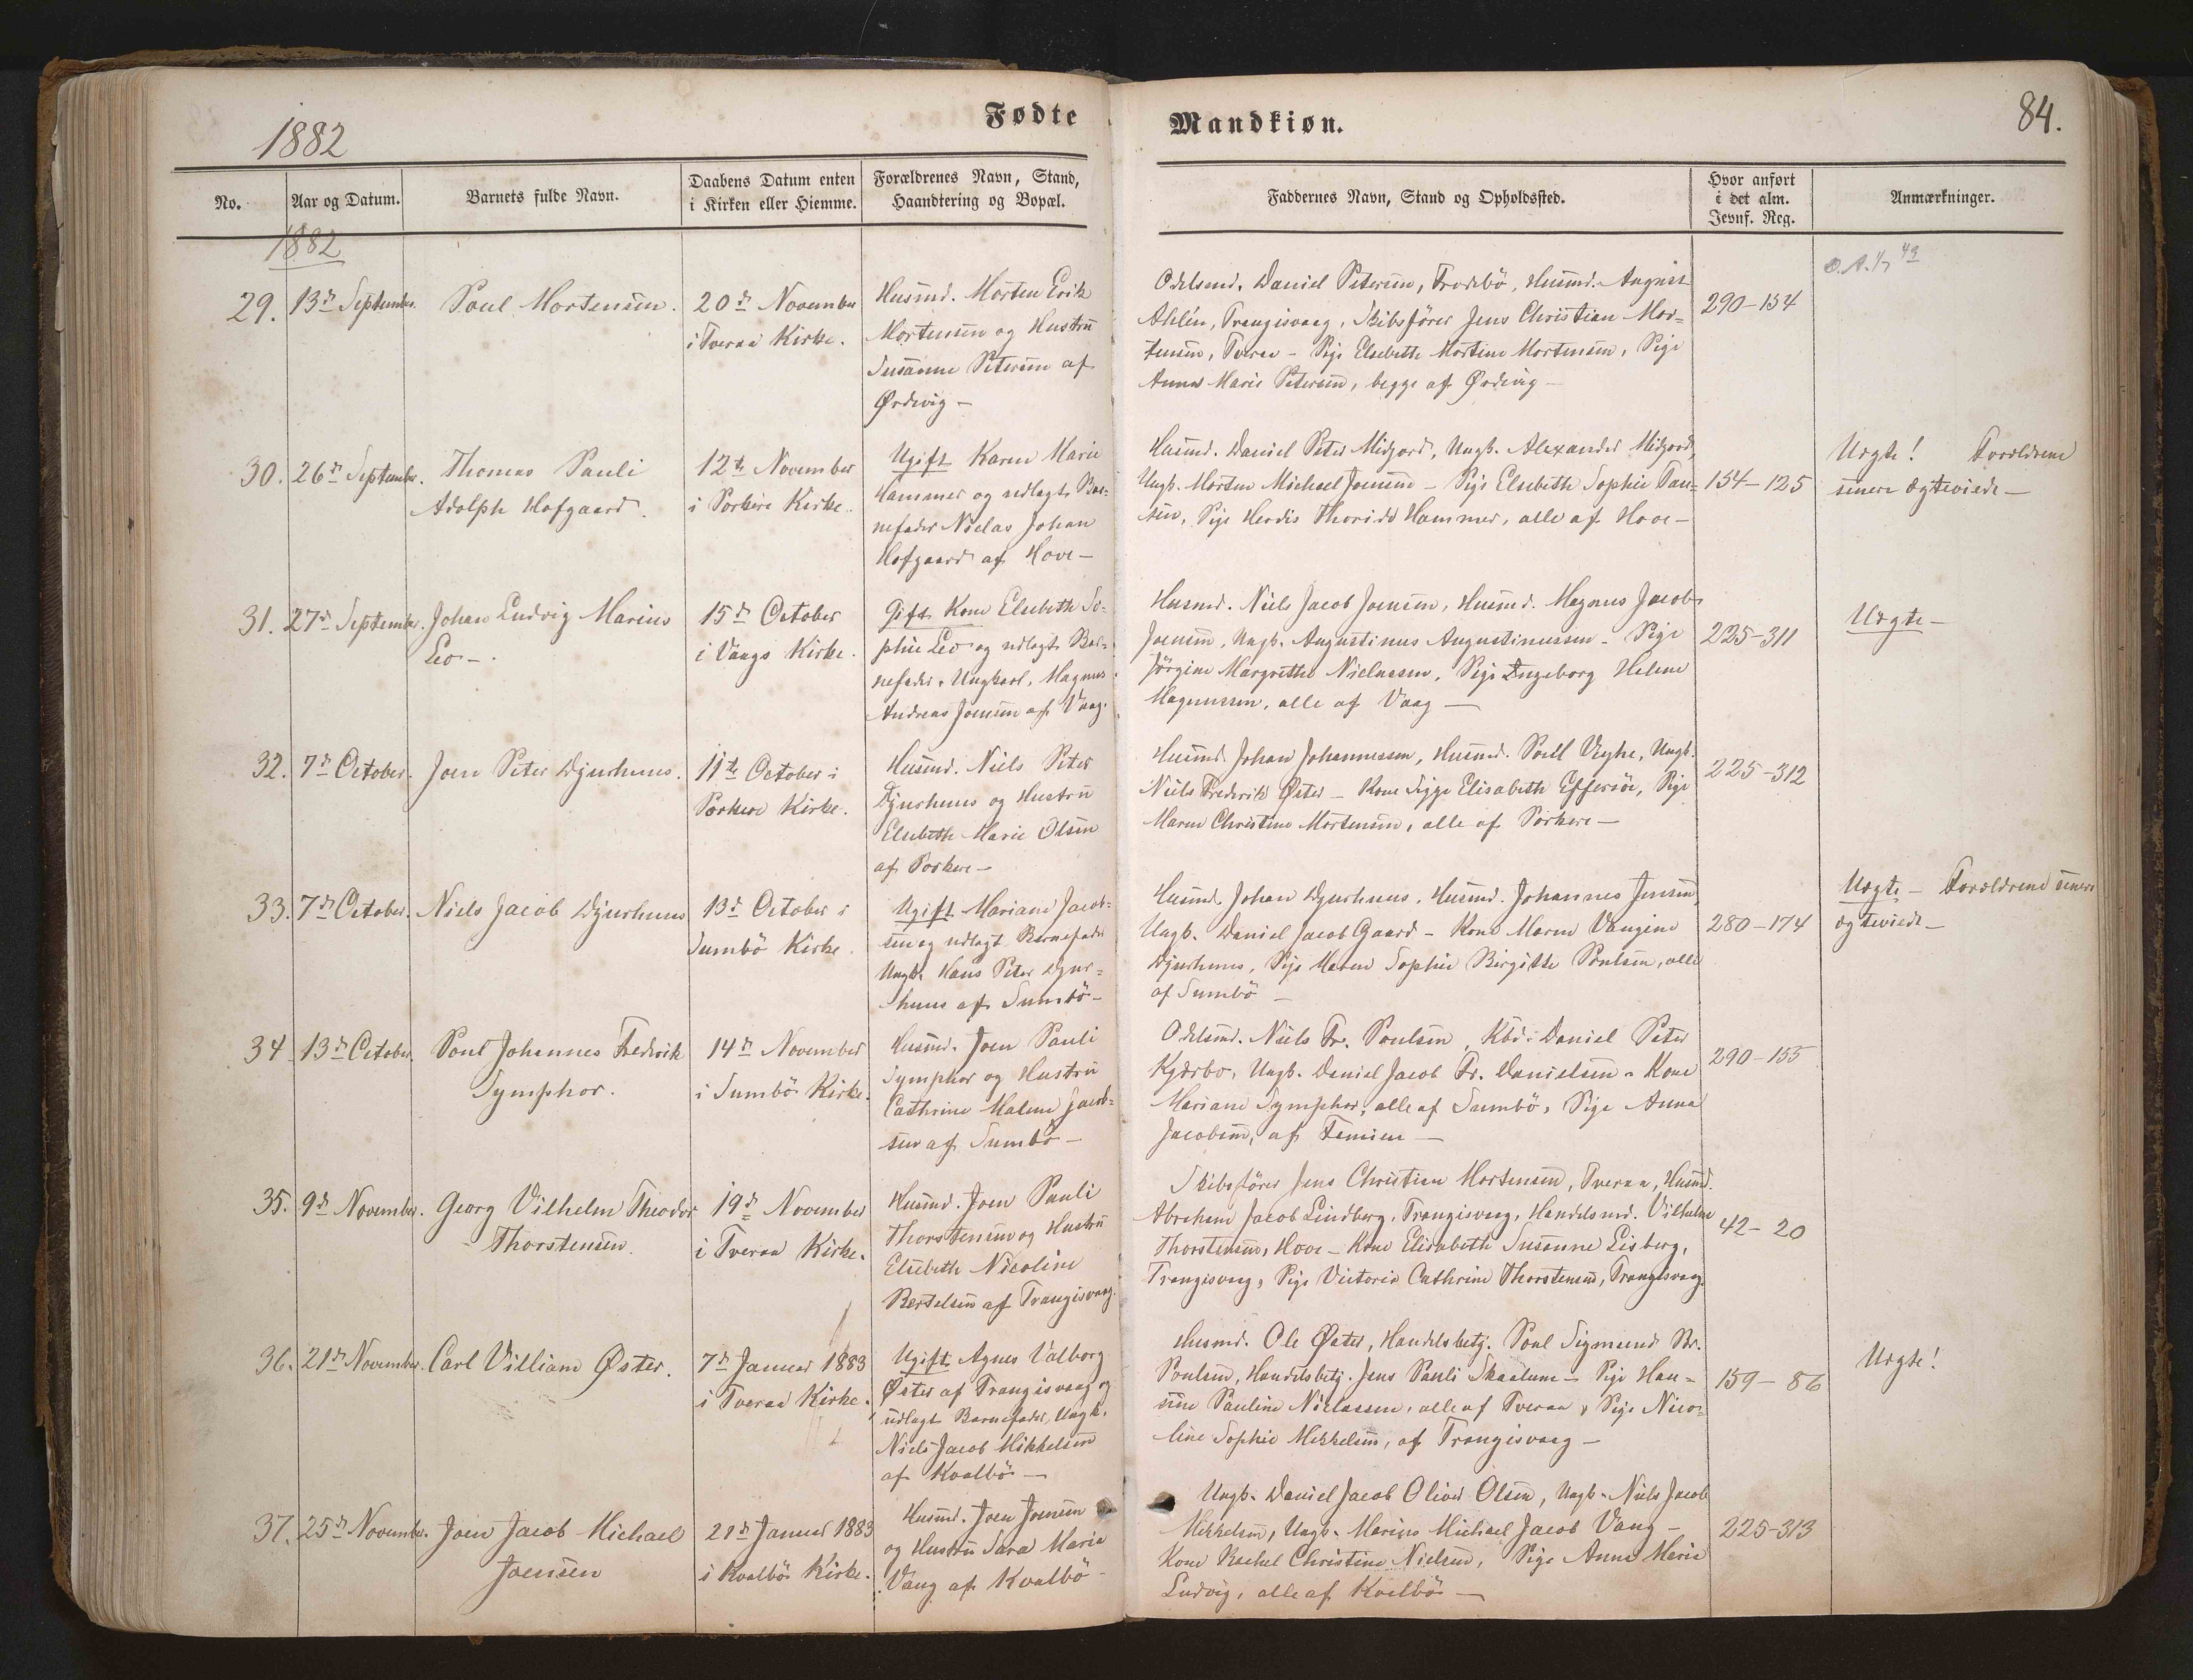 1882
Fødte
No.
Aar og Datum.
Barnets fulde Navn.
Daabens Datum enten
i Kirken eller Hiemme.
Forældrenes Navn, Stand,
Haandtering og Bopæl.
1882
29.
13d September.
Poul Mortensen.
20d November
i Tveraa Kirke.
Husmd. Morten Erik
Mortensen og Hustru
Susanne Petersen af
Ørdevig –
30.
26d September.
Thomas Pauli
Adolph Hofgaard.
12te November
i Porkere Kirke.
Ugift Karen Marie
Hammer og udlagt Bar=
nefader Niclas Johan
Hofgaard af Hove –
31.
27d September.
Johan Ludvig Marius
Leo –.
15d October
i Vaags Kirke.
Gift Kone Elsebeth So=
phie Leo og udlagt Bar=
nefader, Ungkarl. Magnus
Andreas Joensen af Vaag.
32.
7d October.
Joen Peter Djurhuus.
11te October i
Porkere Kirke.
Husmd. Niels Peter
Djurhuus og Hustru
Elsebeth Marie Olsen
af Porkere –
33.
7d October.
Niels Jacob Djurhuus
13d October i
Sumbö Kirke.
Ugift Mariane Jacob=
sen og udlagt Barnefader
Ungk. Hans Peter Djur=
huus af Sumbö –
34.
13d October.
Poul Johannes Frederik
Symphor.
14d November
i Sumbö Kirke.
Husmd. Joen Pauli
Symphor og Hustru
Cathrine Malene Jacob=
sen af Sumbö –
35.
9d November.
Georg Vilhelm Theodor
Thorstensen.
19d November
i Tveraa Kirke.
Husmd. Joen Pauli
Thorstensen og Hustru
Elsebeth Nicoline
Bertelsen af Trangisvaag.
36.
21d November.
Carl Villiam Øster.
7d Januar 1883
i Tveraa Kirke.
Ugift Agnes Valborg
Øster af Trangisvaag og
udlagt Barnefader, Ungk.
Niels Jacob Mikkelsen
af Kvalbö –
37.
25d November.
Joen Jacob Michael
Joensen
21d Januar 1883
i Kvalbö Kirke.
Husmd. Joen Joensen
og Hustru Sara Marie
Vang af Kvalbö –
Mandkiøn.
84.
Faddernes Navn, Stand og Opholdssted.
Hvor anført
i det alm.
Jevnf. Reg.
Anmærkninger.
Odelsmd. Daniel Petersen, Frodebö, Husmd. August
Ahlén, Trangisvaag, Skibsförer Jens Christian Mor=
tensen, Tveraa – Pige Elsebeth Mortine Mortensen, Pige
Anna Marie Petersen, begge af Ørdevig –
290–154
Husmd. Daniel Peter Midjord, Ungk. Alexander Midjord,
Ungk. Morten Michael Joensen – Pige Elsebeth Sophie Pau=
sen, Pige Herdis Thorida Hammer, alle af Hove –
154–125
Uægte! Forældrene
senere ægteviede –
Husmd. Niels Jacob Joensen, Husmd. Magnus Jacob
Joensen, Ungk. Augustinus Augustinussen – Pige
Jörgine Margrethe Niclassen, Pige Ingeborg Helene
Magnussen, alle af Vaag –
225–311
Uægte –
Husmd. Johan Johannessen, Husmd. Poul Veyhe, Ungk.
Niels Frederik Øster – Kone Sigge Elisabeth Effersöe, Pige
Maren Christine Mortensen, alle af Porkere –
225–312
Husmd. Johan Djurhuus, Husmd. Johannes Jensen,
Ungk. Daniel Jacob Gaard – Kone Maren Vangine
Djurhuus, Pige Maren Sophie Birgitte Poulsen, alle
af Sumbö –
280–174
Uægte – Forældrene senere
ægteviede –
Odelsmd. Niels Fr. Poulsen, Kbd. Daniel Peter
Kjærbo, Ungk. Daniel Jacob Fr. Danielsen – Kone
Mariane Symphor, alle af Sumbö, Pige Anna
Jacobsen, af Famien –
290–155
Skibsförer Jens Christian Mortensen, Tveraa, Husmd.
Abraham Jacob Lindberg, Trangisvaag, Handelsmd. Vilhelm
Thorstensen, Hove – Kone Elisabeth Susanne Lisberg,
Trangisvaag, Pige Victoria Cathrine Thorstensen, Trangisvaag.
42–20
Husmd. Ole Øster, Handelsbetj. Poul Sigmund Br.
Poulsen, Handelsbetj. Jens Pauli Skaalum – Pige Han=
sine Pauline Niclassen, alle af Tveraa, Pige Nico=
line Sophie Mikkelsen, af Trangisvaag –
159–86
Uægte!
Ungk. Daniel Jacob Oliver Olsen, Ungk. Niels Jacob
Mikkelsen, Ungk. Marius Michael Jacob Vang –
Kone Rachel Christine Nielsen, Pige Anna Marie
Ludvig, alle af Kvalbö –
225–313